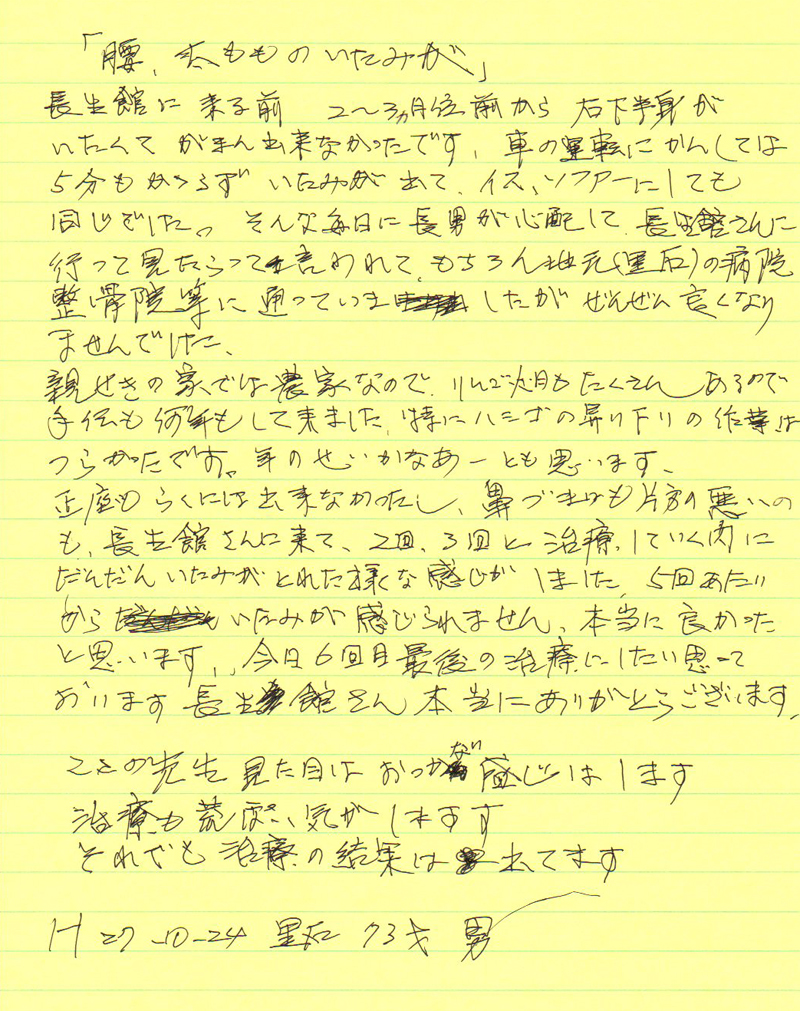 「腰、太もものいたみが」
長生館に来る前 2〜3ヵ月位前から 右下半身が
いたくて がまん出来なかったです、車の運転にかんしては
5分もかからず いたみが出て、イス、ソファーにしても
同じでした。そんな毎日に長男が心配して、長生館さんに
行って見たらって言われて、もちろん地元(黒石)の病院
整骨院等に通っていましたが ぜんぜん良くなり
ませんでした、
親せきの家では農家なので、リンゴ畑もたくさんあるので
手伝も何年もして来ました、特にハシゴの昇り下りの作業は
つらかったです。年のせいかなあーとも思います、
正座もらくには出来なかったし、鼻づまりも片方の悪いの
も、長生館さんに来て、2回、3回と治療していく内に
だんだんいたみがとれた様な感じがしました、5回あたり
から いたみが感じられません、本当に良かった
と思います、今日6回目最後の治療にしたい思って
おります 長生館さん本当にありがとうございます、
ここの先生見た目はおっかない感じはします
治療も荒ぽい気がしますす
それでも治療の結果は出てます
H27-10-24 黒石 73才 男